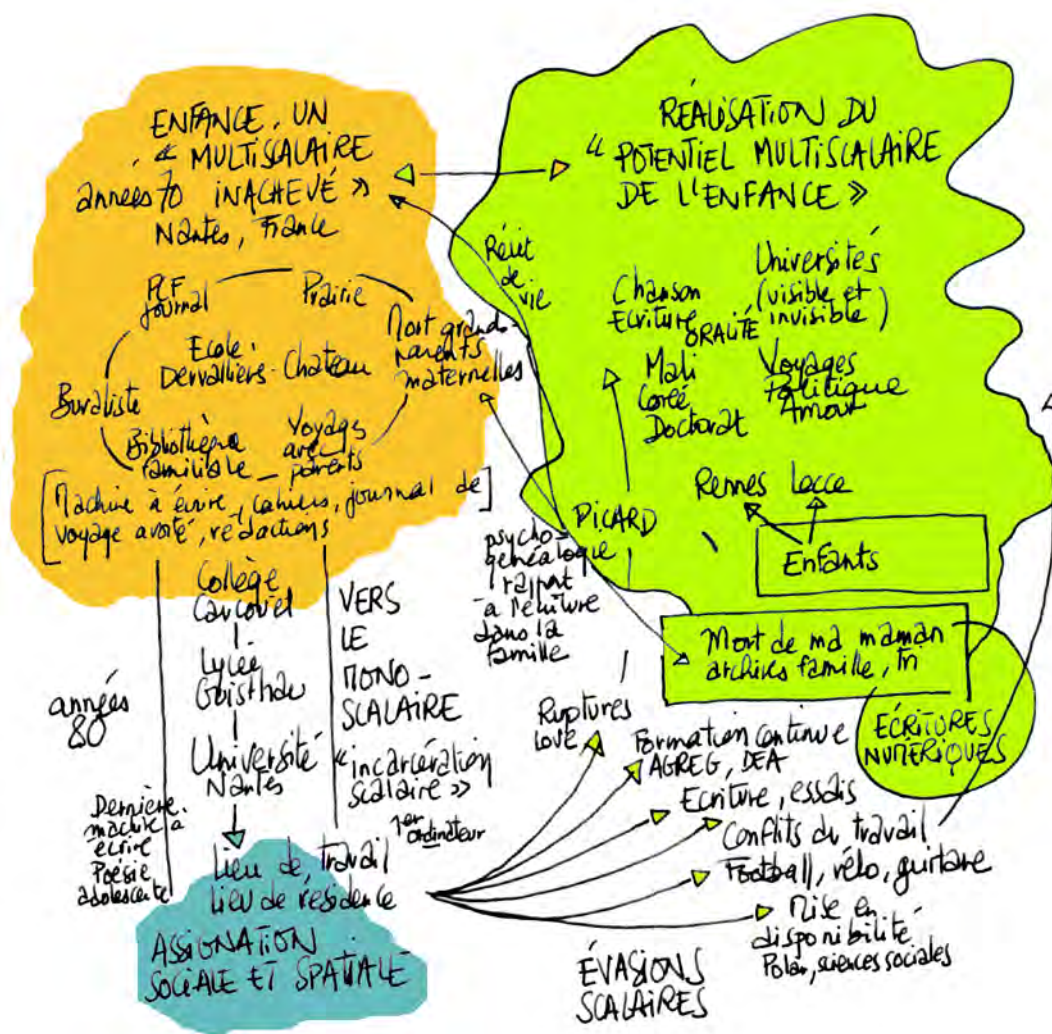 ENFANCE, UN
« MULTISCALAIRE
années 70 INACHEVÉ »
Nantes, France
PCF
Journal
Prairie
Mort grands-
parents
maternelles
Ecole
Dervallières - Chateau
Buraliste
Bibliothèque
familiale
Voyages
avec
parents
[Machine à écrire, cahiers, journal de]
voyage avorté, rédactions
Collège
Lycée
Guisthau
Université
Nantes
années
80
VERS
LE
MONO-
SCALAIRE
« incarcération
scalaire »
1er
ordinateur
Dernière
machine à
écrire
Poésie
adolescente
Lieu de travail
Lieu de résidence
ASSIGNATION
SOCIALE ET SPATIALE
RÉALISATION DU
« POTENTIEL MULTISCALAIRE
DE L'ENFANCE »
Récit
de
vie
Chanson
Ecriture
ORALITÉ
Universités
(visible et
invisible)
Mali
Corée
Doctorat
Voyages
Politique
Amour
Rennes Lecce
Enfants
PICARD
psycho-
généalogie
rapport
à l'écriture
dans la
famille
Mort de ma maman
archives famille,
ÉCRITURES
NUMÉRIQUES
Ruptures
Love
Formation continue
AGREG, DEA
Ecriture, essais
Conflits du travail
Football, vélo, guitare
Mise en
disponibilité
Polar, sciences sociales
ÉVASIONS
SCALAIRES